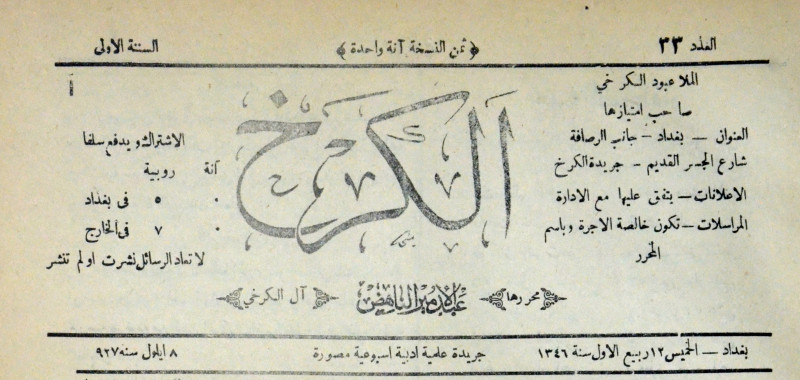 العدد ٣٣
﴿ ثمن النسخة آنة واحدة ﴾
السنة الاولى
الملا عبود الكرخي
صاحب امتيازها
العنوان — بغداد — جانب الرصافة
شارع الجسر القديم — جريدة الكرخ
الاعلانات — يتفق عليها مع الادارة
المراسلات — تكون خالصة الاجرة وباسم
المحرر
الكرخ
الاشتراك ويدفع سلفا
آنة روبية
٠ ٥ فى بغداد
٠ ٧ فى الخارج
لا تعاد الرسائل نشرت او لم تنشر
محررها
عبد الامير الناهض
آل الكرخي
بغداد — الخميس ١٢ ربيع الاول سنة ١٣٤٦
جريدة علمية ادبية اسبوعية مصورة
٨ ايلول سنه ٩٢٧